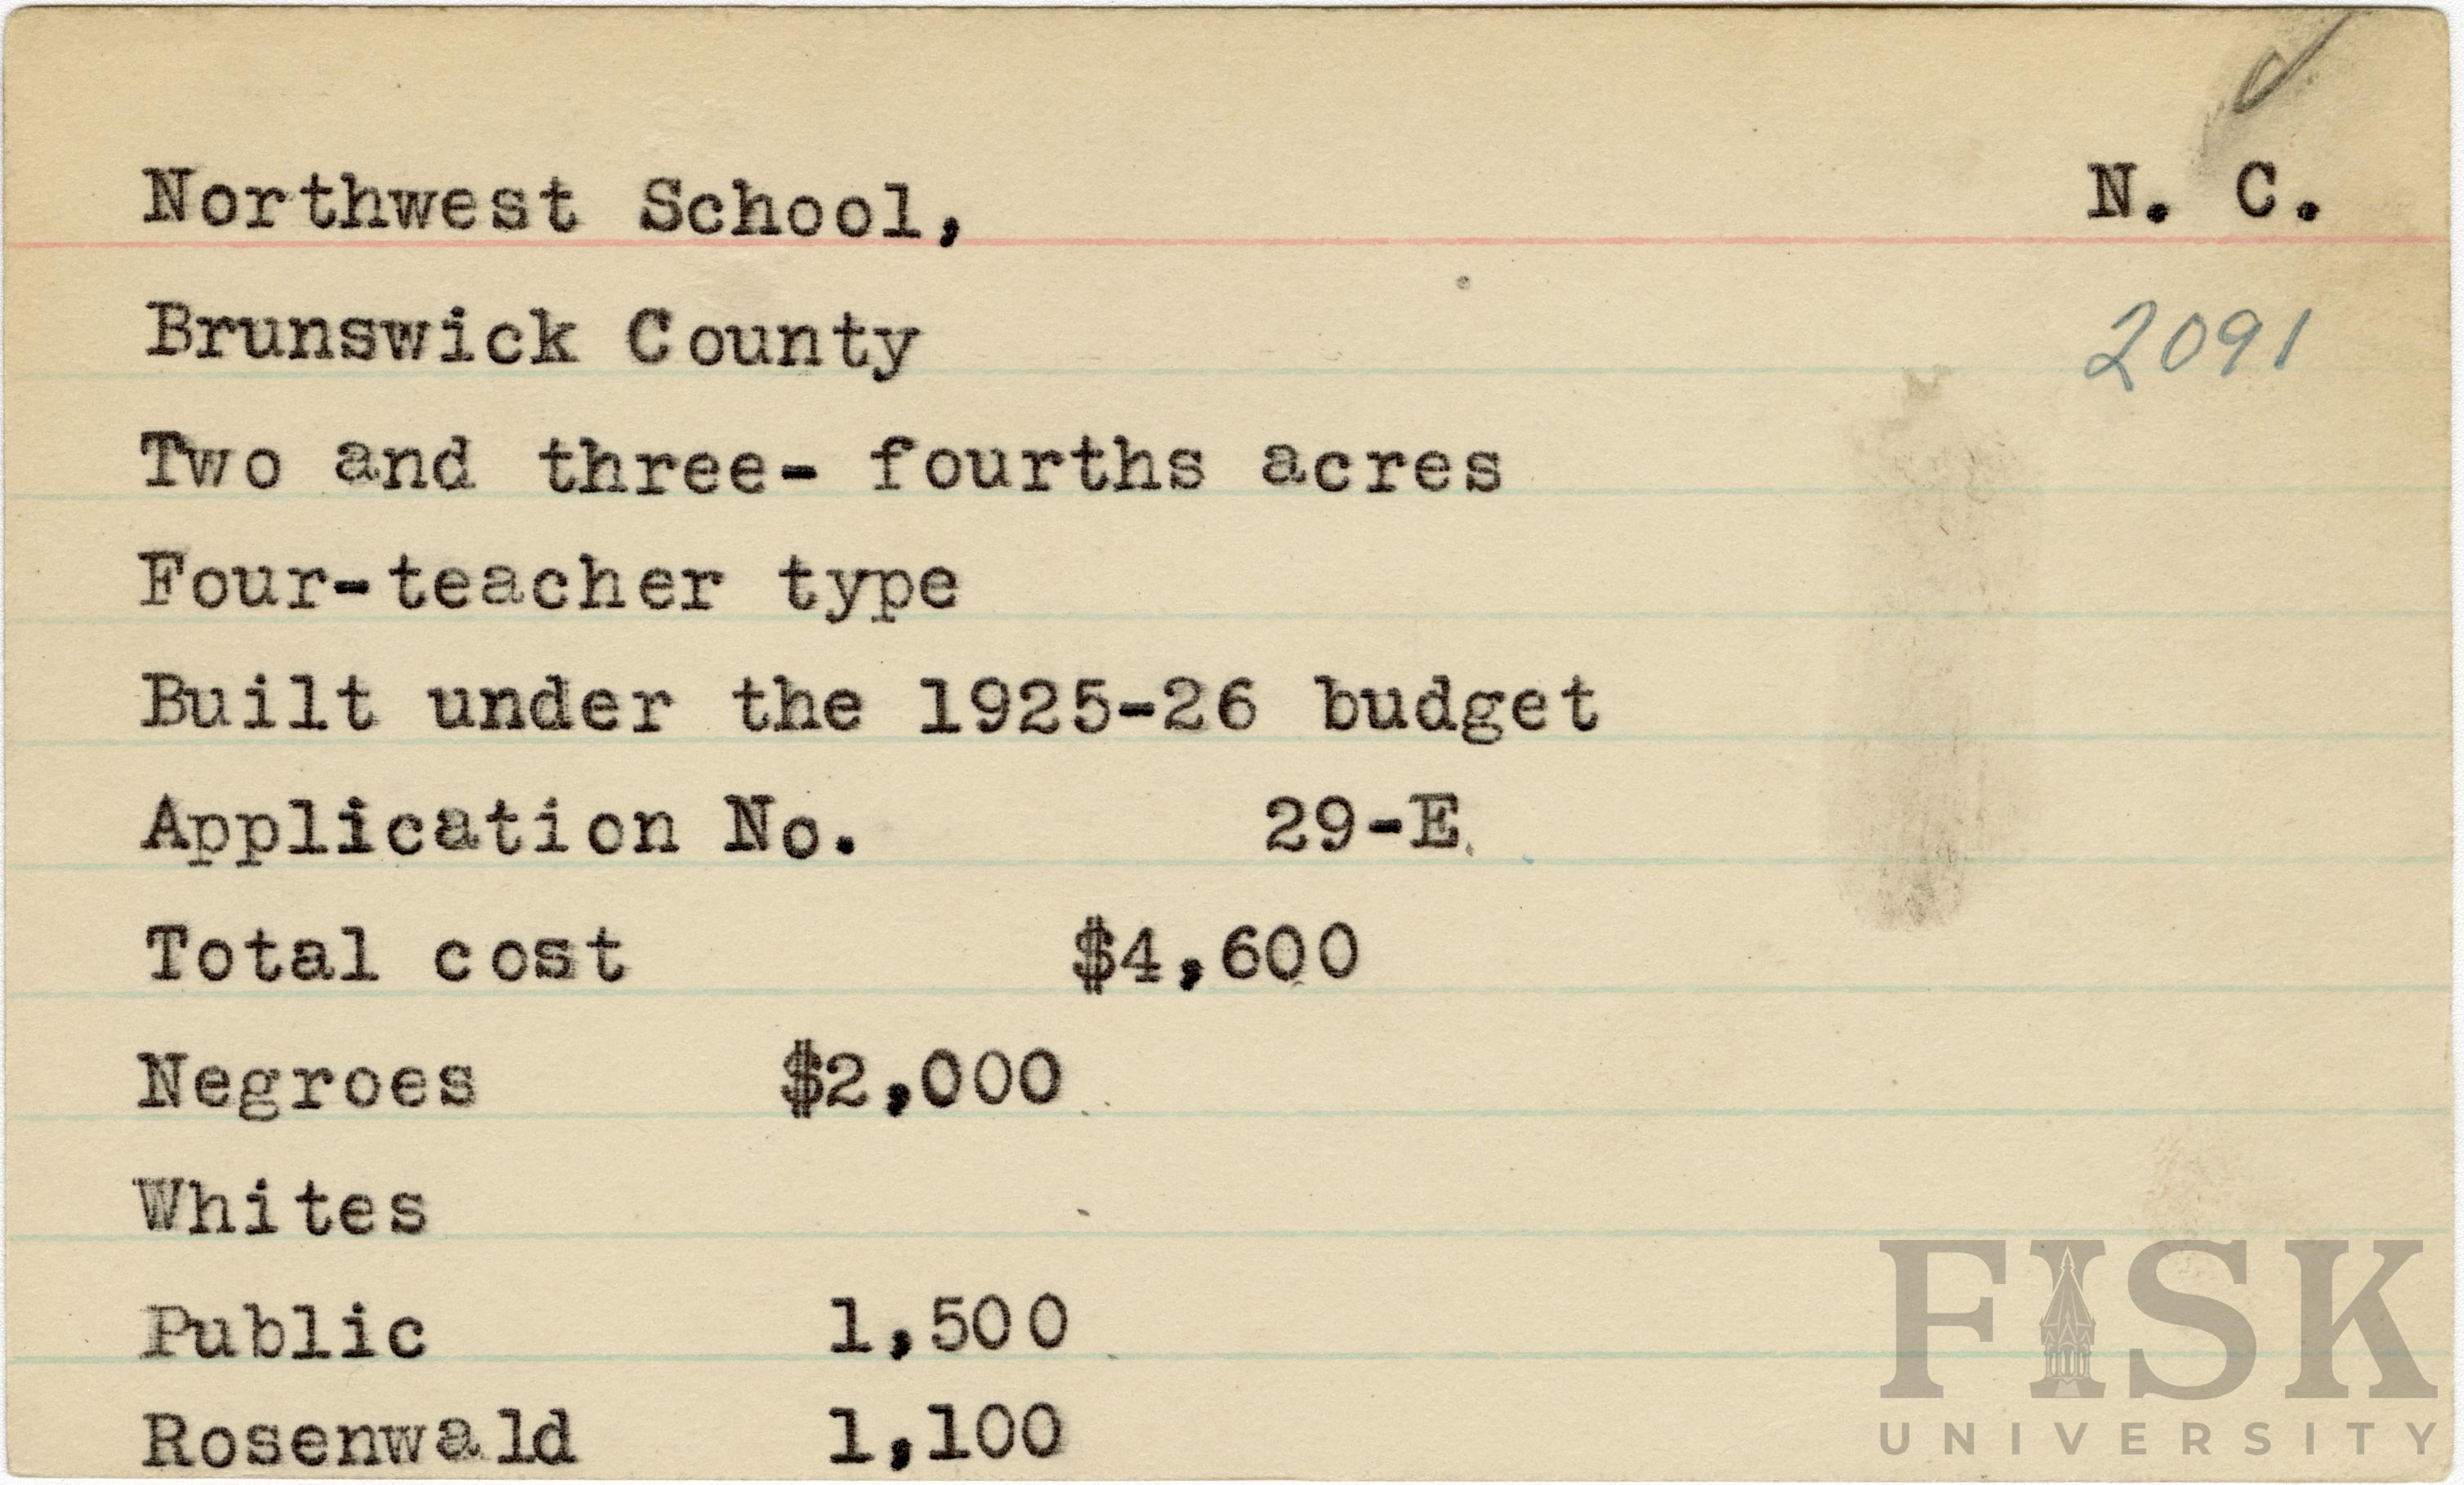 Northwest School, N. C.
Brunswick County 2091
Two and three- fourths acres
Four-teacher type
Built under the 1925-26 budget
Application No. 29-E
Total cost $4,600
Negroes $2,000
Whites
Public 1,500
Rosenwald 1,100
FISK
UNIVERSITY